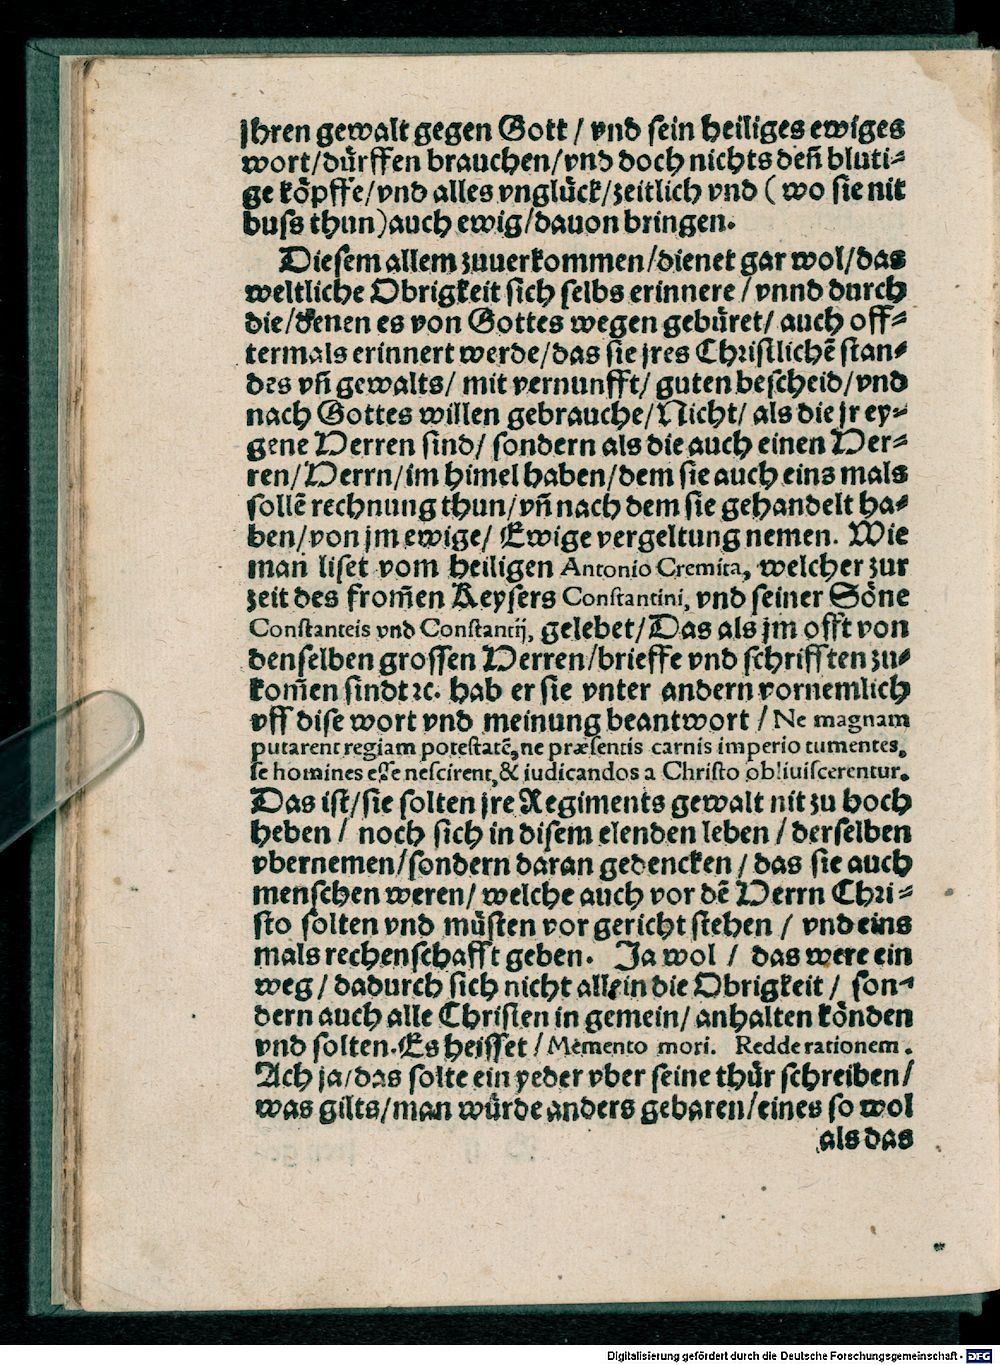 jhren gewalt gegen Gott / vnd sein heiliges ewiges
wort/dürffen brauchen/vnd doch nichts deñ bluti⸗
ge köpffe/vnd alles vnglück/zeitlich vnd ( wo sie nit
buſs thun)auch ewig/dauon bringen.
Dieſem allem zuuerkommen/dienet gar wol/das
weltliche Obrigkeit ſich ſelbs erinnere / vnnd durch
die/denen es von Gottes wegen gebüret/ auch off⸗
termals erinnert werde/das ſie jres Chriſtlichẽ ſtan⸗
des vñ gewalts/ mit vernunfft/ guten beſcheid/vnd
nach Gottes willen gebrauche/Nicht/ als die jr ey⸗
gene Herren ſind/ ſondern als die auch einen Her⸗
ren/Herrn/im himel haben/dem ſie auch eins mals
ſollẽ rechnung thun/vñ nach dem ſie gehandelt ha⸗
ben/von jm ewige/ Ewige vergeltung nemen. Wie
man liſet vom heiligen Antonio Cremita, welcher zur
zeit des from̃en Keyſers Conſtantini, vnd ſeiner Söne
Conſtanteis vnd Conſtantij, gelebet/Das als jm offt von
denſelben groſſen Herren/brieffe vnd ſchrifften zu⸗
kom̃en ſindt ꝛc. hab er ſie vnter andern vornemlich
vff diſe wort vnd meinung beantwort / Ne magnam
putarent regiam poteſtatẽ, ne præſentis carnis imperio tumentes,
ſe homines eſſe neſcirent, & iudicandos a Chriſto obliuiſcerentur.
Das iſt/ſie ſolten jre Regiments gewalt nit zu hoch
heben / noch ſich in diſem elenden leben / derſelben
vbernemen/ſondern daran gedencken / das ſie auch
menſchen weren/ welche auch vor dẽ Herrn Chri⸗
ſto ſolten vnd müſten vor gericht ſtehen / vnd eins
mals rechenſchafft geben. Ja wol / das were ein
weg / dadurch ſich nicht allein die Obrigkeit / ſon⸗
dern auch alle Chriſten in gemein/ anhalten könden
vnd ſolten. Es heiſſet / Memento mori. Redde rationem.
Ach ja/das ſolte ein yeder vber ſeine thür ſchreiben/
was gilts/man würde anders gebaren/eines ſo wol
als das
Digitalisierung gefördert durch die Deutsche Forschungsgemeinschaft - DFG